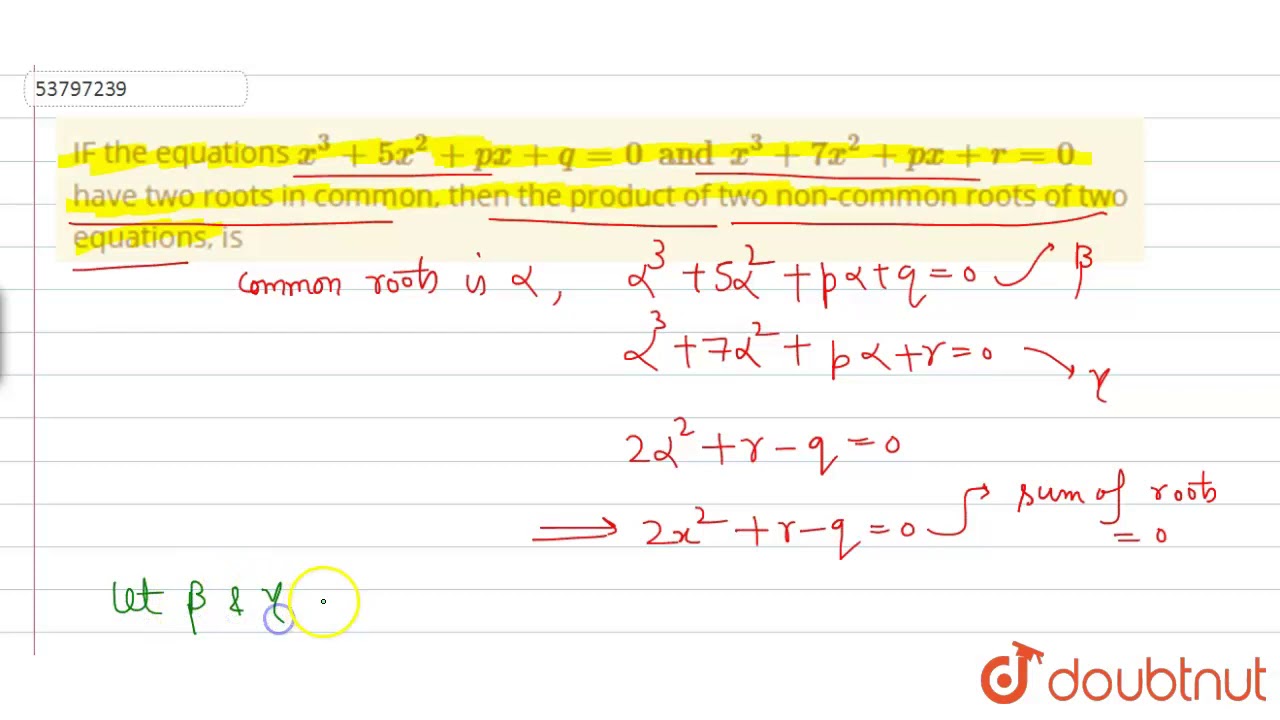 53797239
IF the equations x³ + 5x² + px + q = 0 and x³ + 7x² + px + r = 0
have two roots in common, then the product of two non-common roots of two
equations, is
common roots is α, α³ + 5α² + pα + q = 0 β
α³ + 7α² + pα + r = 0 γ
2α² + r - q = 0
⟹ 2x² + r - q = 0 sum of roots
= 0
let β & γ
doubtnut